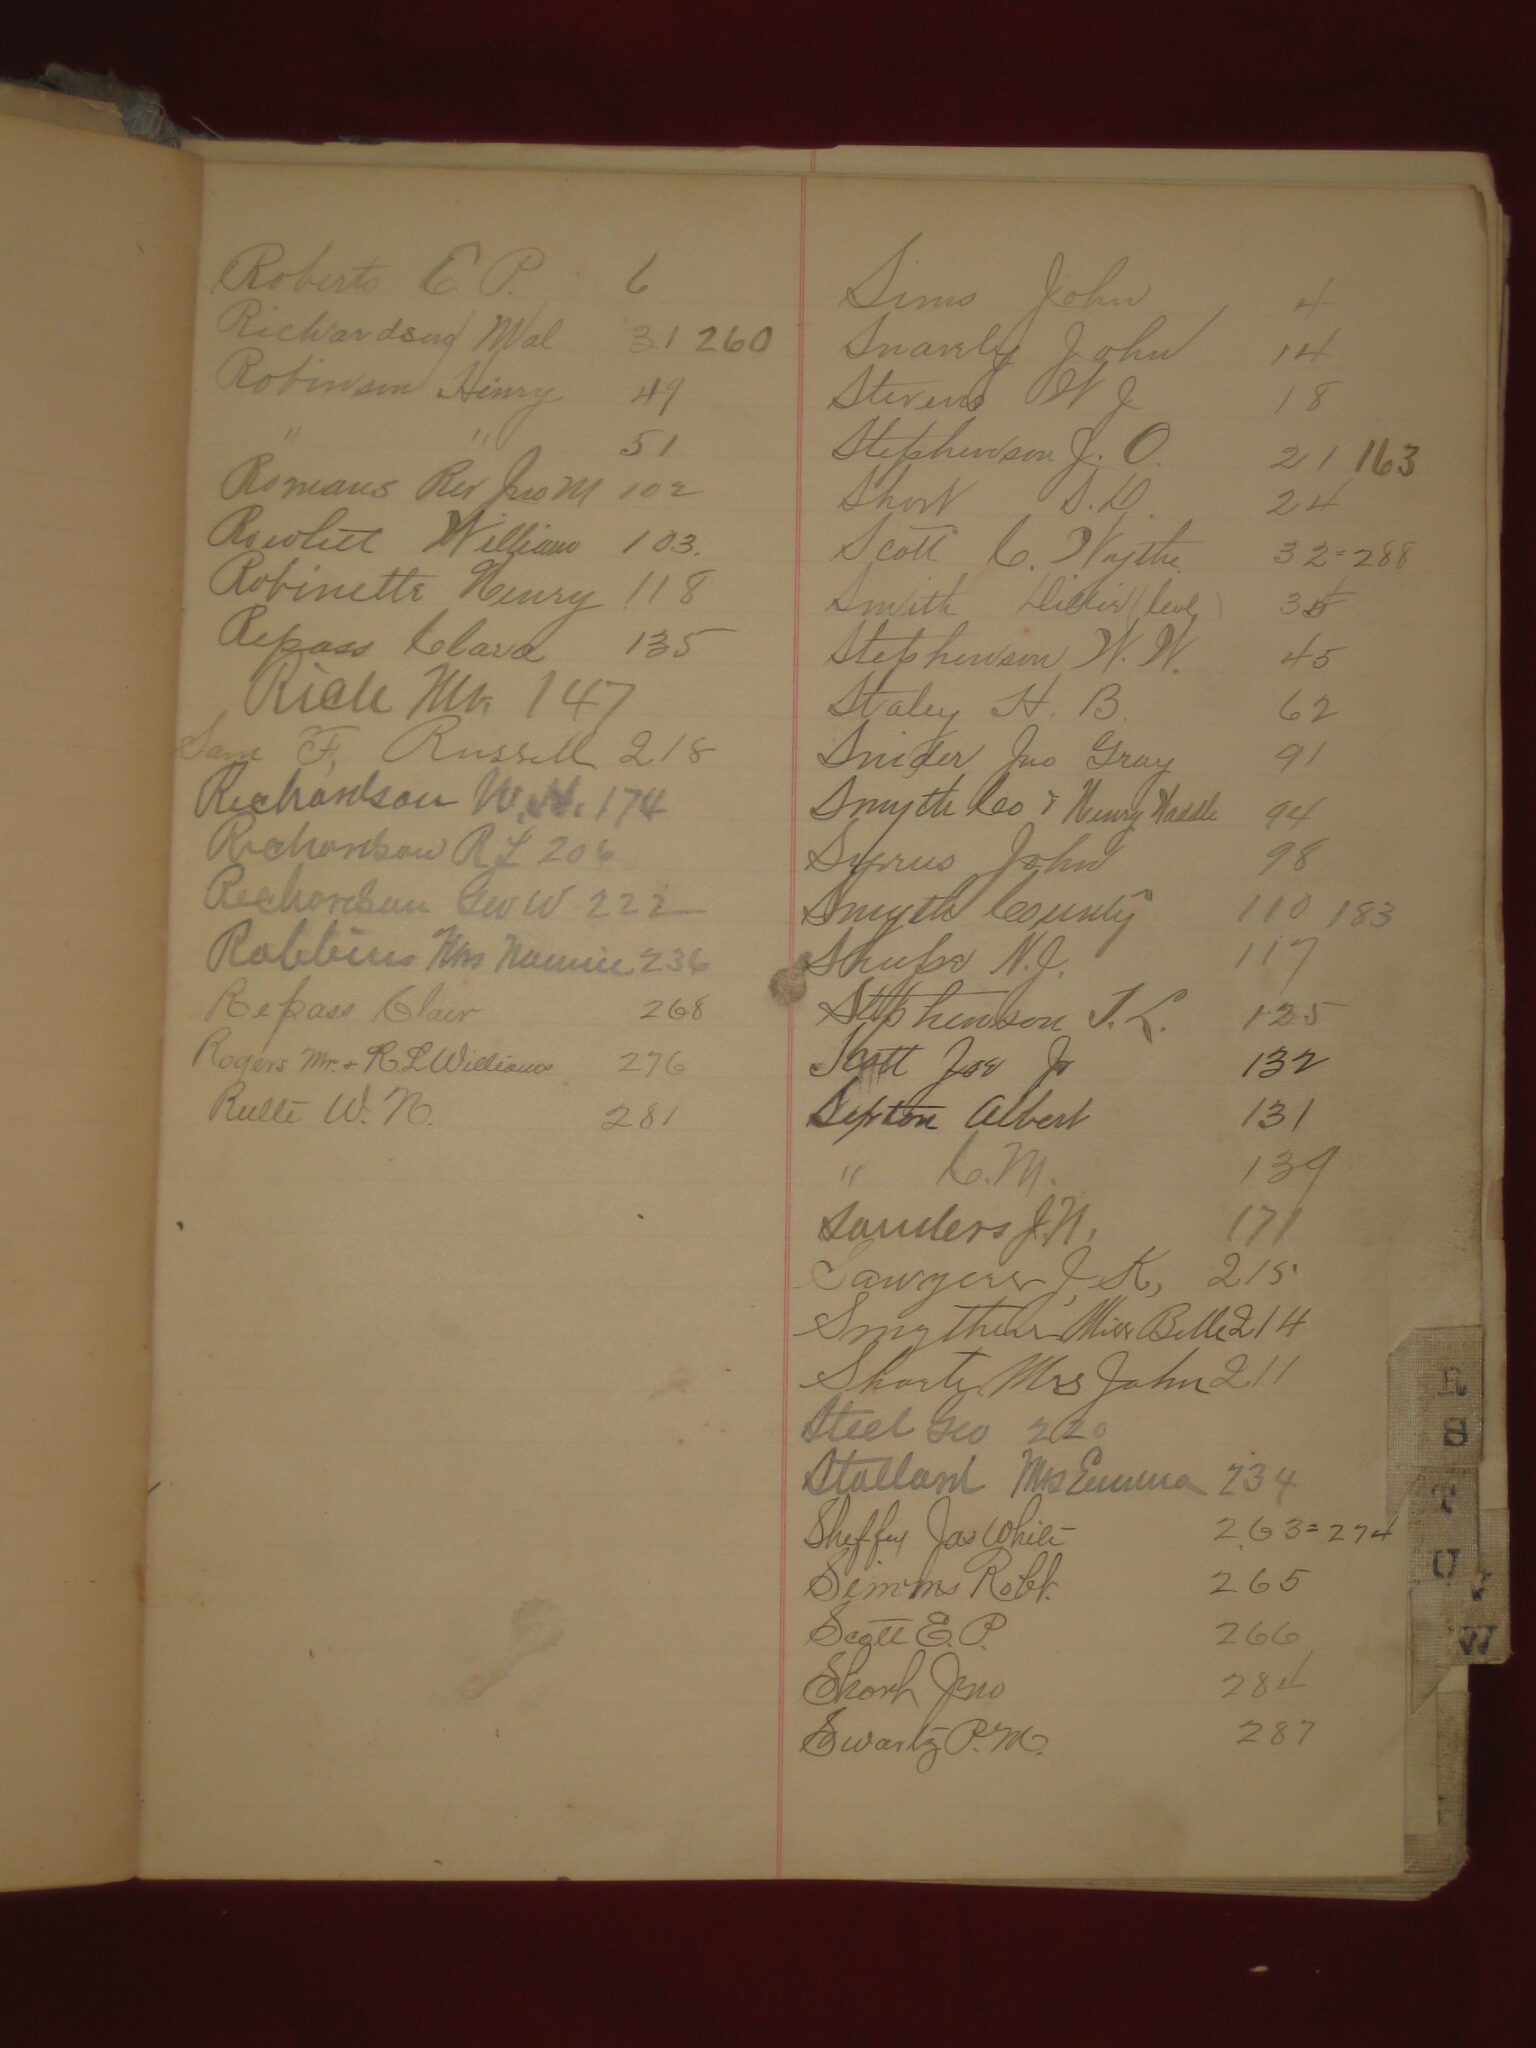 Roberts E. P. 6
Richardson Wal 31 260
Robinson Henry 49
" " 51
Romans Rev Jno M 102
Rowlett William 103.
Robinette Henry 118
Repass Clara 135
Rich Mr. 147
Sam F. Russell 218
Richardson W. H. 174
Richardson R L 206
Richardson Geo W 222
Robbins Mrs Nannie 236
Repass Clair 268
Rogers Mr. & R. L Williams 276
Rulle W. N. 281
Sims John 4
Snavely John 14
Stevens W J 18
Stephenson J. O. 21 163
Short S. D. 24
Scott C. Wythe 32=288
Smith 35
Stephenson W. W. 45
Staley H. B. 62
Snider Jno Gray 91
Smyth Co & Henry 94
Syrus John 98
Smyth County 110 183
Shupe N. J. 117
Stephenson T. L. 125
Scott Joe Jr 132
Sexton Albert 131
" C. M. 139
Sanders J. N. 171
Sawyers J. K, 215
Smythers Miss Belle 214
Shorte Mrs John 211
Steel Geo 220
Stallard Mrs Emma 234
Sheffey Jas White 263=274
Simms Robt. 265
Scott E. P. 266
Short Jno 284
Swartz P. M. 287
R
S
T
U
V
W